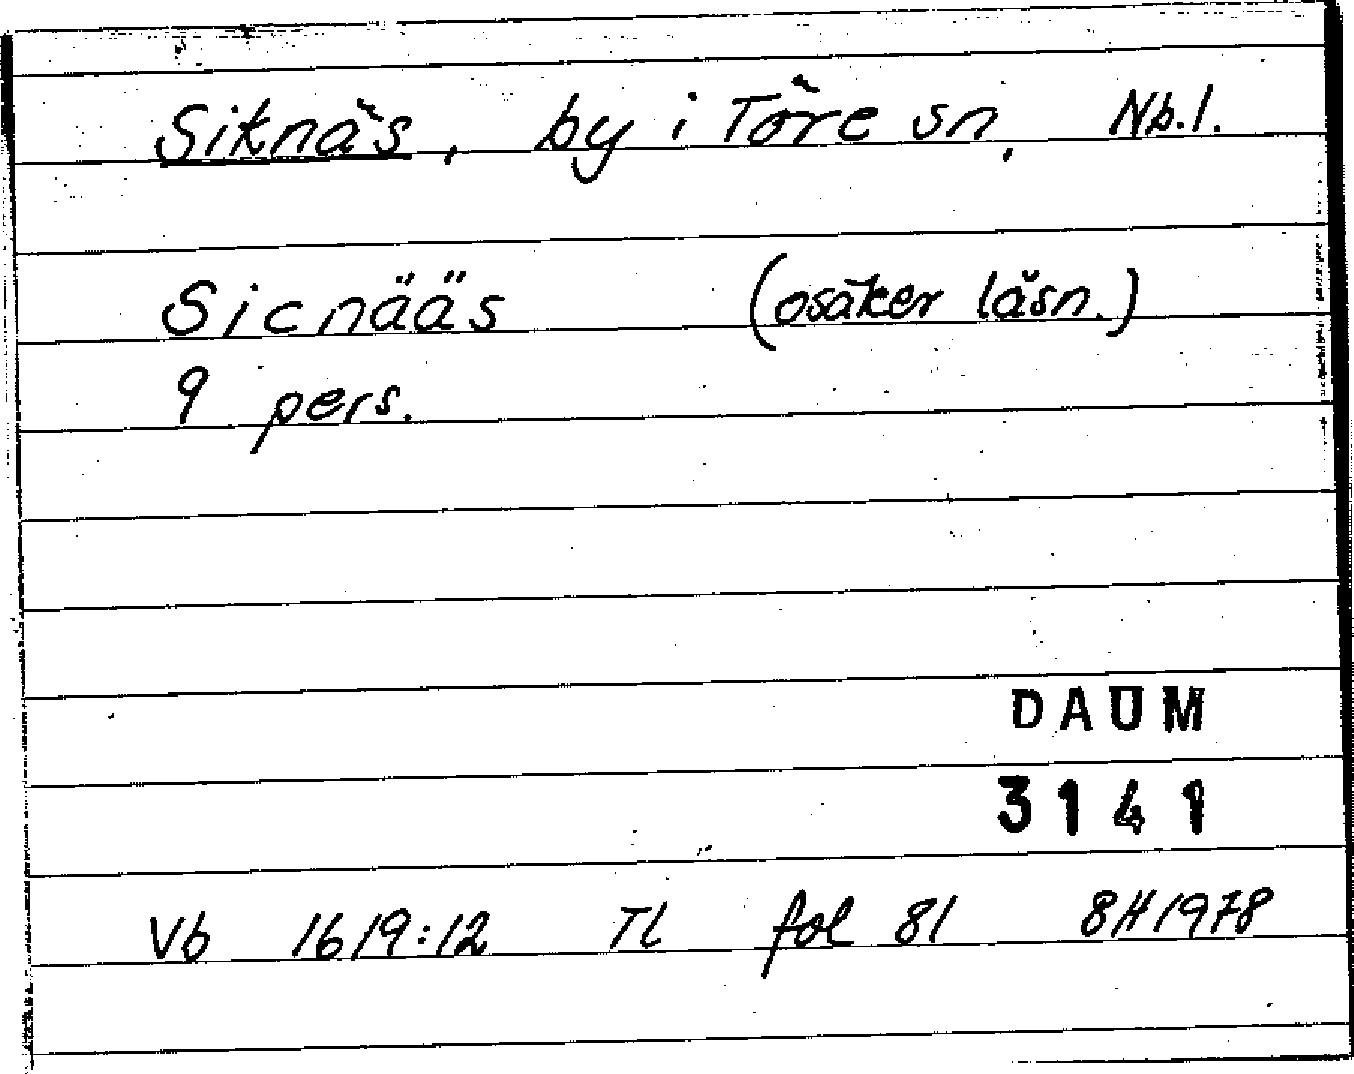 Siknäs, by i Töre sn, Nb.l.
Sicnääs (osäker läsn.)
9 pers.
DAUM
3141
Vb 1619:12 TL fol 81 8H1978